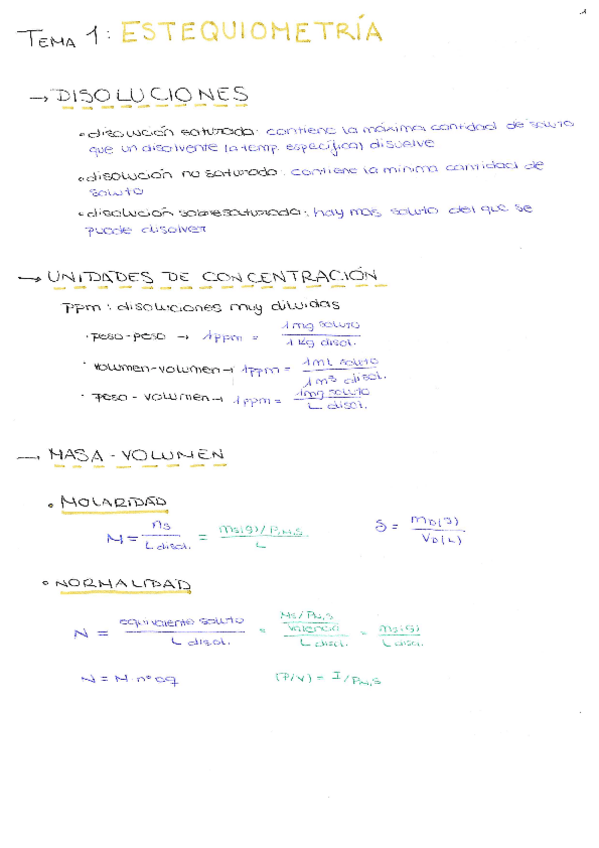 TEMA 1: ESTEQUIOMETRÍA
→ DISOLUCIONES
• disolución saturada: contiene la máxima cantidad de soluto
que un disolvente (a temp. específica) disuelve
• disolución no saturada: contiene la mínima cantidad de
soluto
• disolución sobresaturada: hay más soluto del que se
puede disolver
→ UNIDADES DE CONCENTRACIÓN
ppm: disoluciones muy diluidas
· peso-peso → 1ppm = 1mg soluto / 1 kg disol.
· volumen-volumen → 1ppm = 1mL soluto / 1 m³ disol.
· peso - volumen → 1ppm = 1mg soluto / L disol.
→ MASA - VOLUMEN
• MOLARIDAD
M = ns / L disol. = ms(g)/Pm,s / L
δ = mD(g) / VD(L)
• NORMALIDAD
N = equivalente soluto / L disol. = ms/Pm,s / valencia / L disol. = ms(g) / L disol.
N = M · nº eq
(P/V) = I/Pm,s